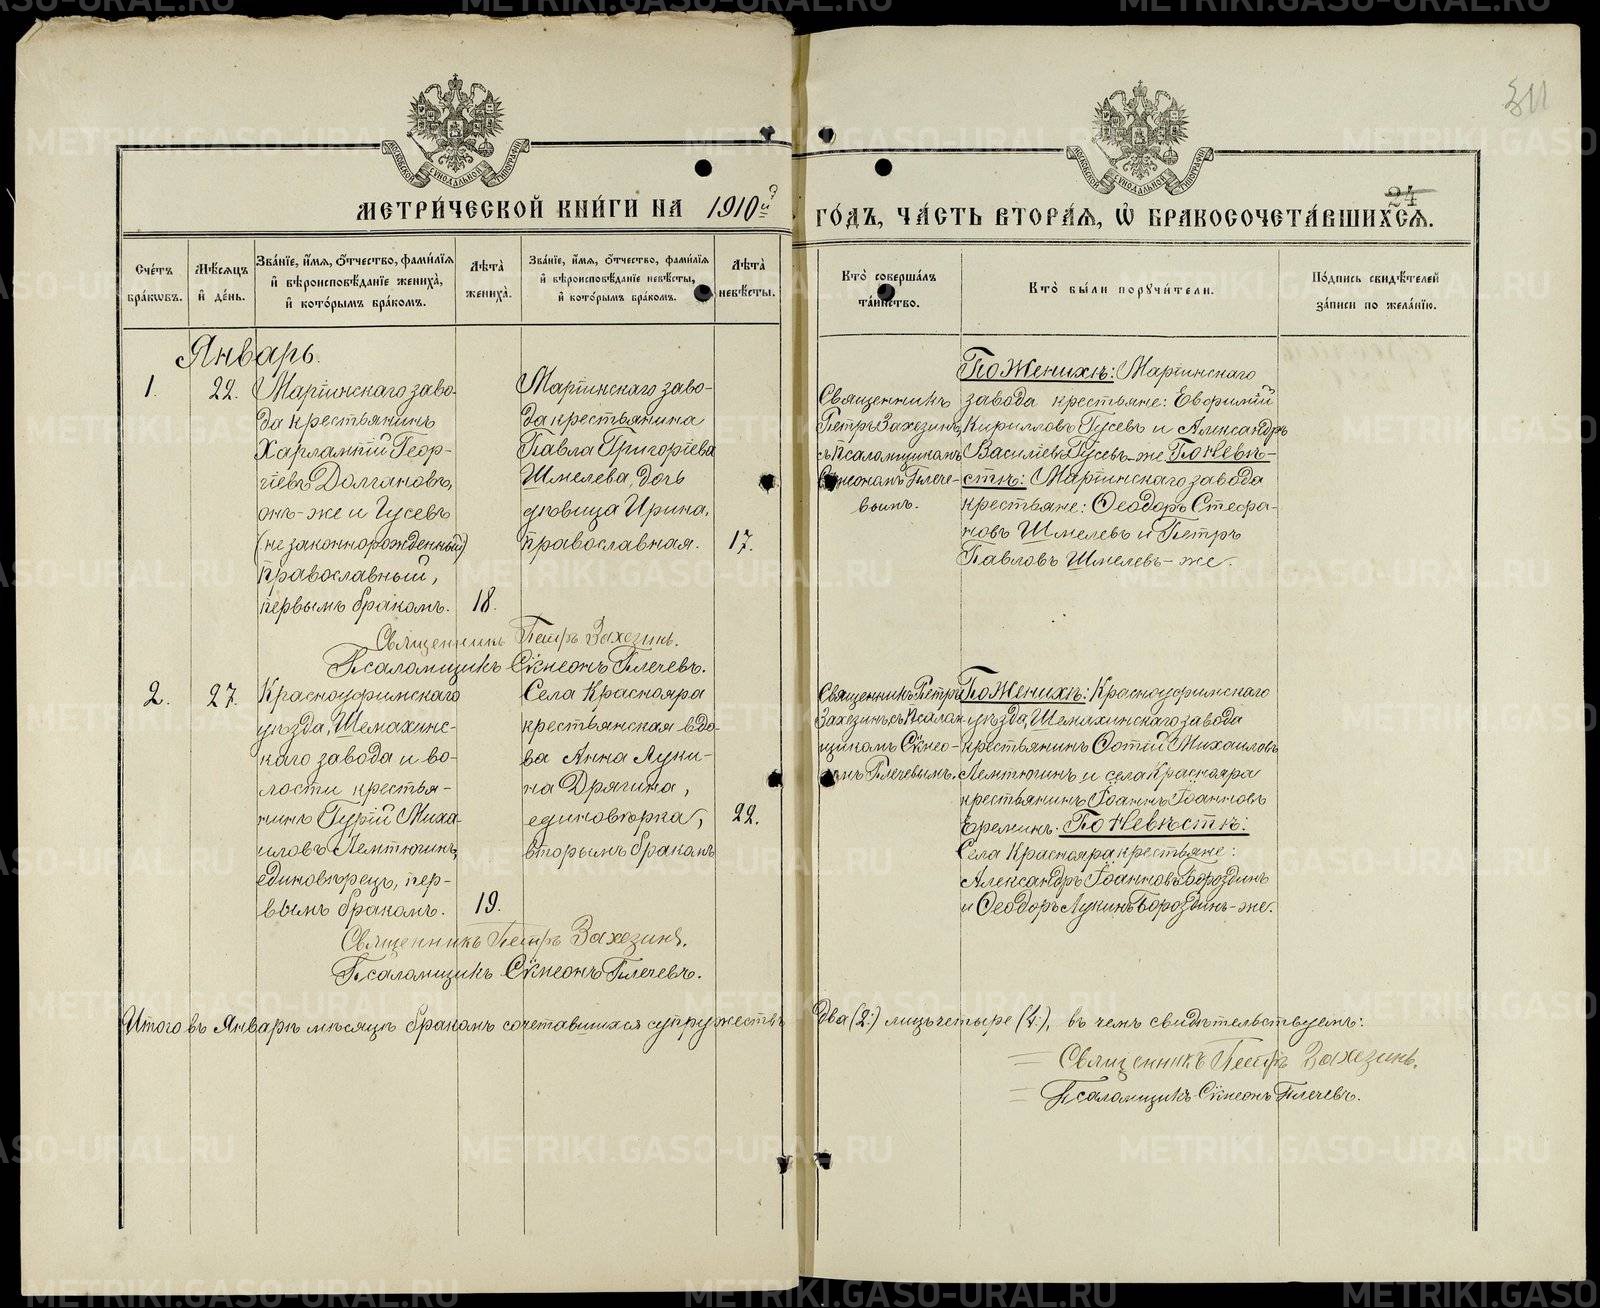 МЕТРИЧЕСКОЙ КНИГИ НА 1910й
ГОДЪ, ЧАСТЬ ВТОРАЯ, Ѡ БРАКОСОЧЕТАВШИХСЯ.
24
Счетъ браковъ.
Мѣсяцъ и день.
Званіе, имя, отчество, фамилія
и вѣроисповѣданіе жениха,
и которымъ бракомъ.
Лѣта жениха.
Званіе, имя, отчество, фамилія
и вѣроисповѣданіе невѣсты,
и которымъ бракомъ.
Лѣта невѣсты.
Кто совершалъ таинство.
Кто были поручители.
Подпись свидѣтелей
записи по желанію.
Январь.
1.
22.
Маріинскаго заво-
да крестьянинъ
Харлампій Геор-
гіевъ Долгановъ,
онъ-же и Гусевъ
(незаконнорожденный)
православный,
первымъ бракомъ.
18.
Маріинскаго заво-
да крестьянина
Павла Григоріева
Шмелева, дочь
дѣвица Ирина,
православная.
17.
Священникъ
Петръ Захезинъ,
съ псаломщикомъ
Сѵмеономъ Плече-
вымъ.
По Женихѣ: Маріинскаго
завода крестьяне: Евфимій
Кирилловъ Гусевъ и Александръ
Василіевъ Гусевъ-же По Невѣ-
стѣ: Маріинскаго завода
крестьяне: Ѳеодоръ Стефа-
новъ Шмелевъ и Петръ
Павловъ Шмелевъ-же.
Священникъ Петръ Захезинъ.
Псаломщикъ Сѵмеонъ Плечевъ.
2.
27.
Красноуфимскаго
уѣзда, Шемахинс-
каго завода и во-
лости крестья-
нинъ Гурій Миха-
иловъ Лемтюгинъ,
единовѣрецъ, пер-
вымъ бракомъ.
19.
Села Краснояра
крестьянская вдо-
ва Анна Луки-
на Дрягина,
единовѣрка,
вторымъ бракомъ
22.
Священникъ Петръ
Захезинъ съ Псалом-
щикомъ Сѵмео-
номъ Плечевымъ.
По Женихѣ: Красноуфимскаго
уѣзда, Шемахинскаго завода
крестьянинъ Фотій Михаиловъ
Лемтюгинъ и села Краснояра
крестьянинъ Іоаннъ Іоанновъ
Ереминъ. По Невѣстѣ:
Села Краснояра крестьяне:
Александръ Іоанновъ Бороздинъ
и Ѳеодоръ Лукинъ Бороздинъ-же.
Священникъ Петръ Захезинъ.
Псаломщикъ Сѵмеонъ Плечевъ.
Итого въ Январѣ мѣсяцѣ бракомъ сочетавшихся супружествъ два (2.) лицъ четыре (4.), въ чемъ свидѣтельствуемъ:
Священникъ Петръ Захезинъ.
Псаломщикъ Сѵмеонъ Плечевъ.
METRIKI.GASO-URAL.RU